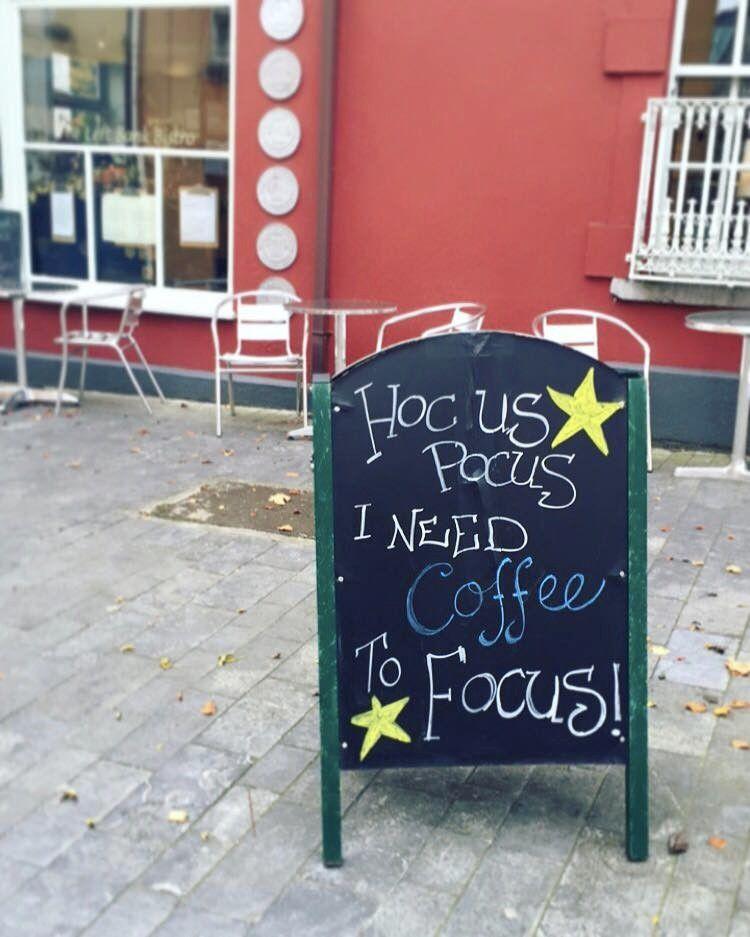 Left Bank Bistro
Hocus
Pocus
I NEED
Coffee
To Focus!